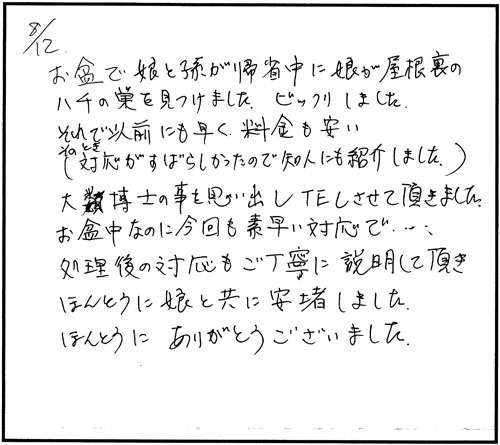 8/12.
お盆で娘と孫が帰省中に娘が屋根裏の
ハチの巣を見つけました。ビックリしました。
それで以前にも早く、料金も安い
(そのとき対応がすばらしかったので知人にも紹介しました。)
大類博士の事を思い出しTELさせて頂きました。
お盆中なのに今回も素早い対応で…、
処理後の対応もご丁寧に説明して頂き
ほんとうに娘と共に安堵しました。
ほんとうに ありがとうございました。